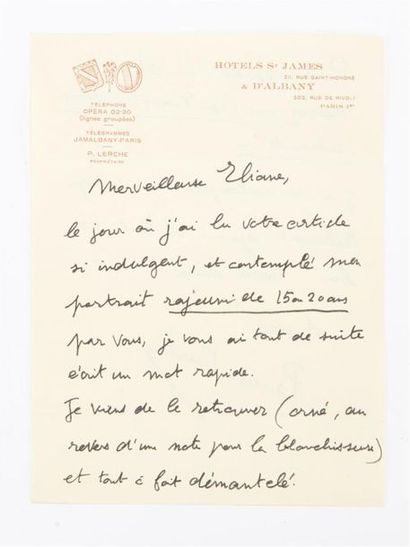 HOTELS St JAMES
211, RUE SAINT-HONORÉ
& D'ALBANY
202, RUE DE RIVOLI
PARIS 1er
TÉLÉPHONE
OPÉRA 02-30
(lignes groupées)
TÉLÉGRAMMES
JAMALBANY-PARIS
P. LERCHE
PROPRIÉTAIRE
Merveilleuse Eliane,
le jour où j'ai lu votre article
si indulgent, et contemplé mon
portrait rajeuni de 15 ou 20 ans
par vous, je vous ai tout de suite
écrit un mot rapide.
Je viens de le retrouver (orné, au
revers d'une note pour la blanchisseuse)
et tout à fait démantelé.